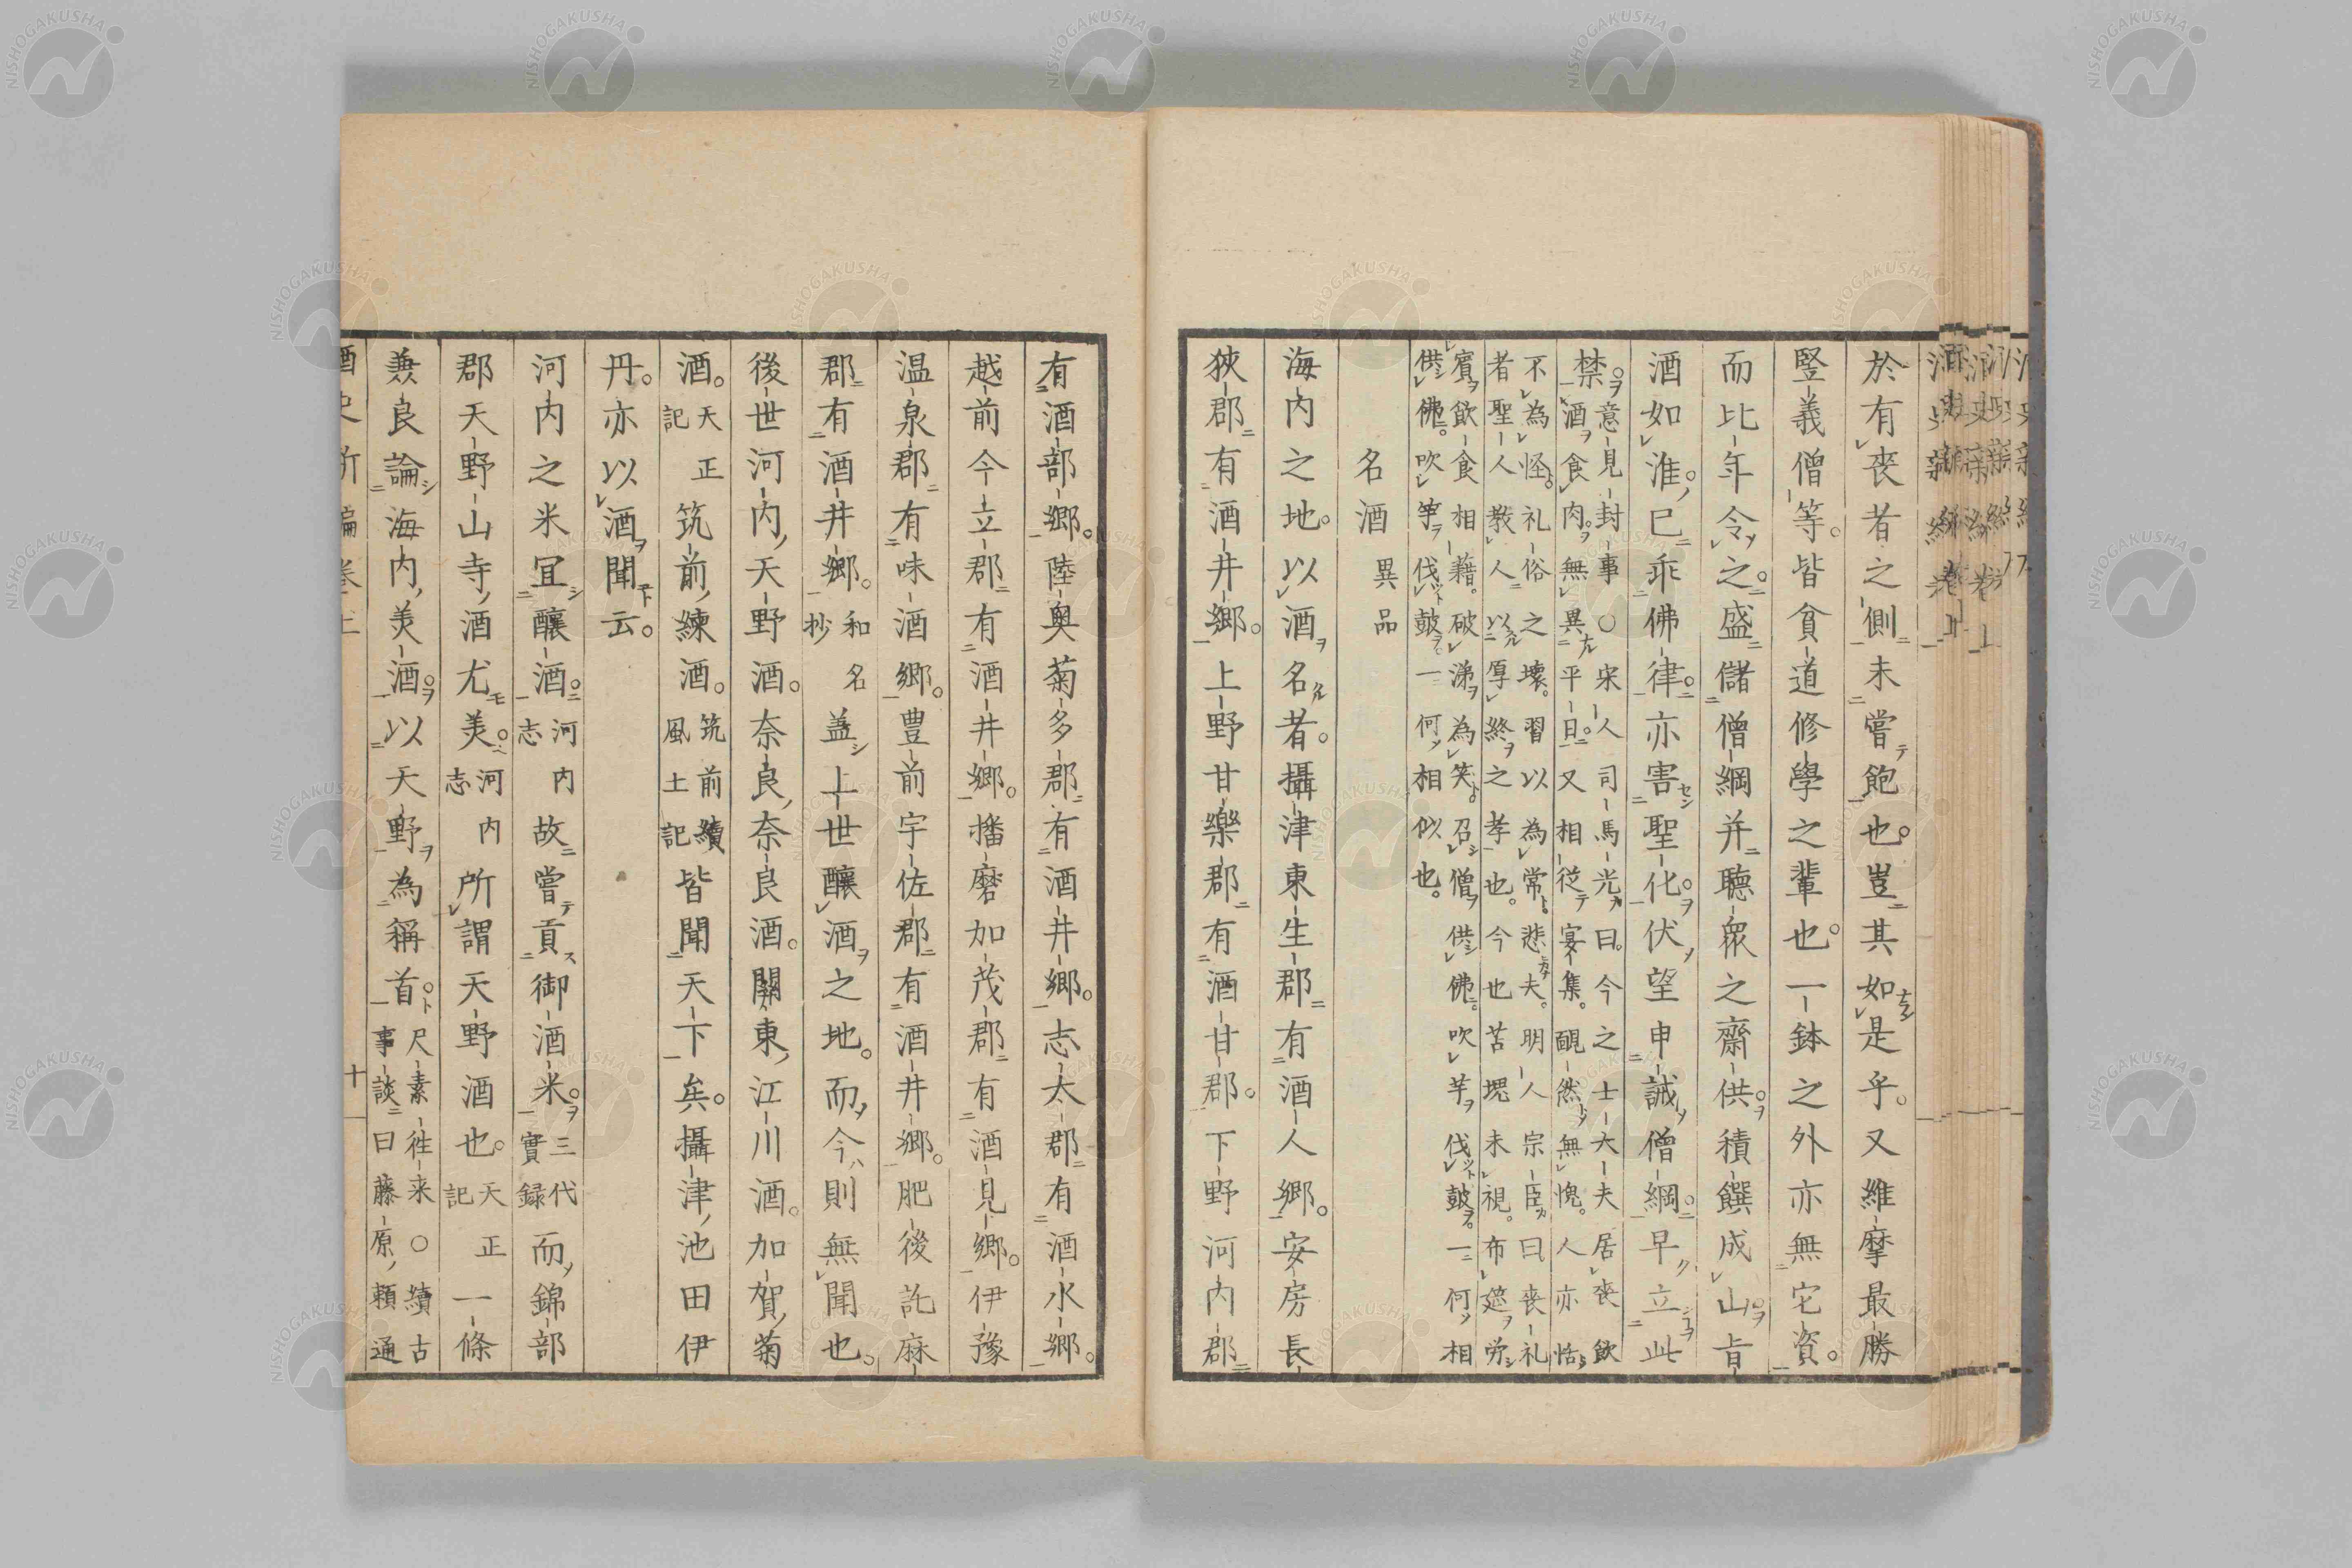 於有喪者之側未嘗飽也豈其如是乎又維摩最勝
竪義僧等皆貧道修學之輩也一鉢之外亦無它資
而比年令之盛儲僧綱并聽衆之齋供積饌成山旨
酒如淮已乖佛律亦害聖化伏望申誡僧綱早立此
禁意見封事〇宋人司馬光曰今之士大夫居喪飲
酒食肉無異平日又相從宴集靦然無愧人亦恬
不為怪礼俗之壞習以為常悲夫明人宗臣曰喪礼
者聖人教人以厚終之孝也今也苦塊未視布筵労
賓飲食相藉破涕為笑召僧供佛吹竽伐鼓一何相
供佛吹竽伐鼓一何相似也
名酒 異品
海内之地以酒名者攝津東生郡有酒人郷安房長
狹郡有酒井郷上野甘樂郡有酒甘郡下野河内郡
有酒部郷陸奥菊多郡有酒井郷志太郡有酒水郷
越前今立郡有酒井郷播磨加茂郡有酒見郷伊豫
温泉郡有味酒郷豊前宇佐郡有酒井郷肥後託麻
郡有酒井郷和名抄蓋上世釀酒之地而今則無聞也
後世河内天野酒奈良奈良酒關東江川酒加賀菊
酒天正記筑前練酒筑前續風土記皆聞天下矣攝津池田伊
丹亦以酒聞云
河内之米冝釀酒河内志故嘗貢御酒米三代實録而錦部
郡天野山寺酒尤美河内志所謂天野酒也天正記一條
兼良論海内美酒以天野為稱首尺素往来〇續古
事談曰藤原頼通
酒史新編卷上 十
NISHOGAKUSHA